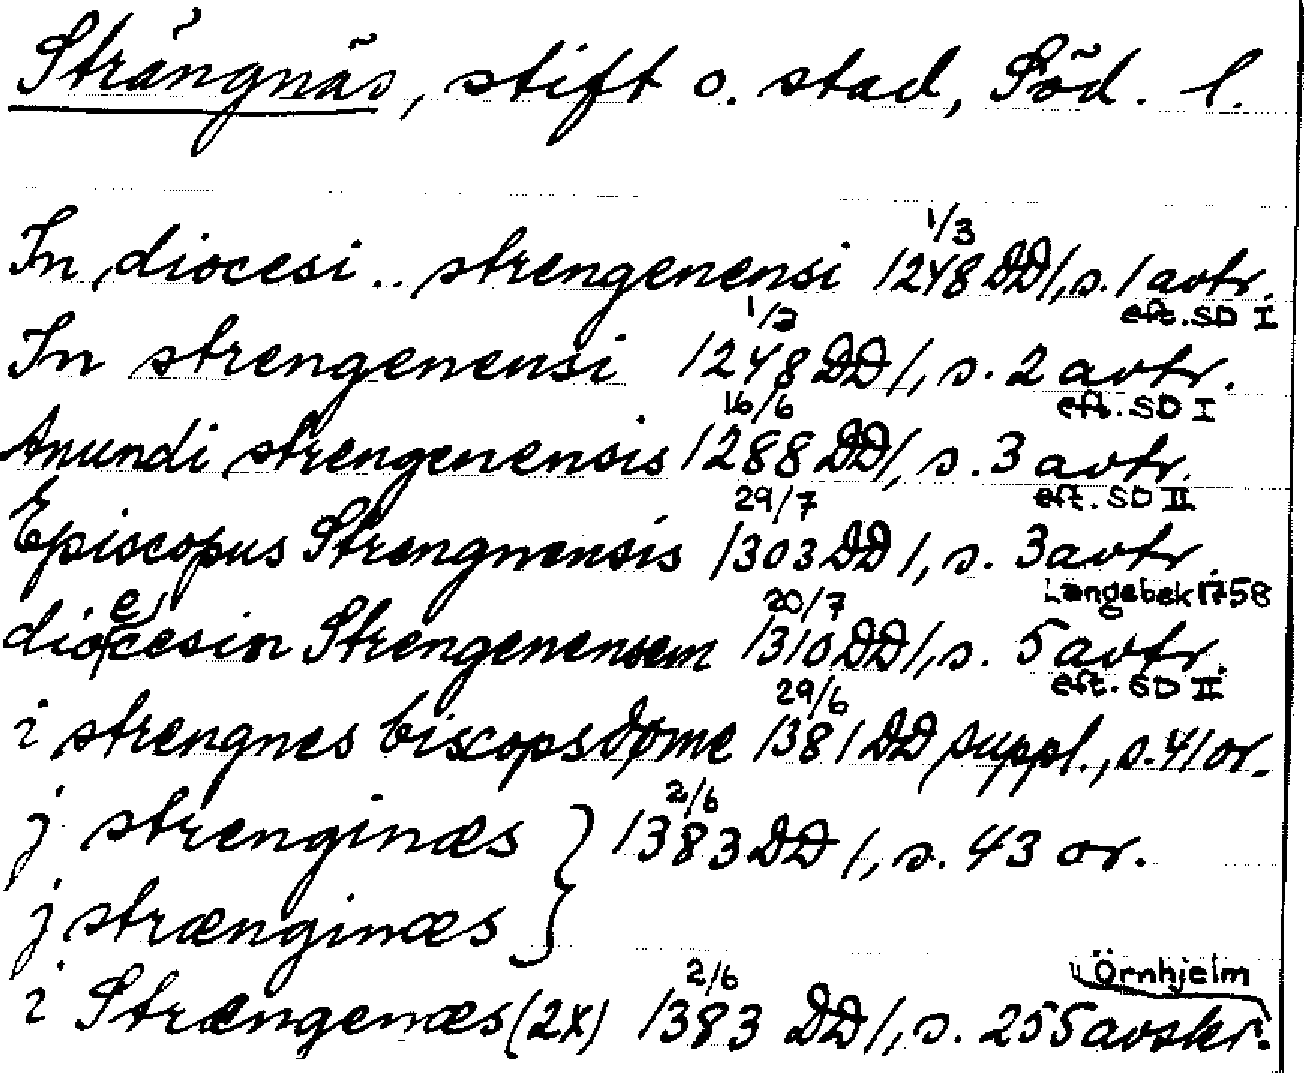 Strängnäs, stift o. stad, Söd. l.
In diocesi .. strengenensi 1/3 1248 DD 1, s. 1 avtr. eft. SD I
In strengenensi 1/2 1248 DD 1, s. 2 avtr. eft. SD I
Anundi strengenensis 16/6 1288 DD 1, s. 3 avtr. eft. SD II
Episcopus Strengnensis 29/7 1303 DD 1, s. 3 avtr. Langebek 1758
diocesin Strengenensem 20/7 1310 DD 1, s. 5 avtr. eft. SD II
i strengnes biscopsdøme 29/6 1381 DD suppl., s. 41 or.
j strenginæs } 2/6 1383 DD 1, s. 43 or.
j strænginæs
i Strængenæs (2X) 2/6 1383 DD 1, s. 255 avskr. Örnhjelm